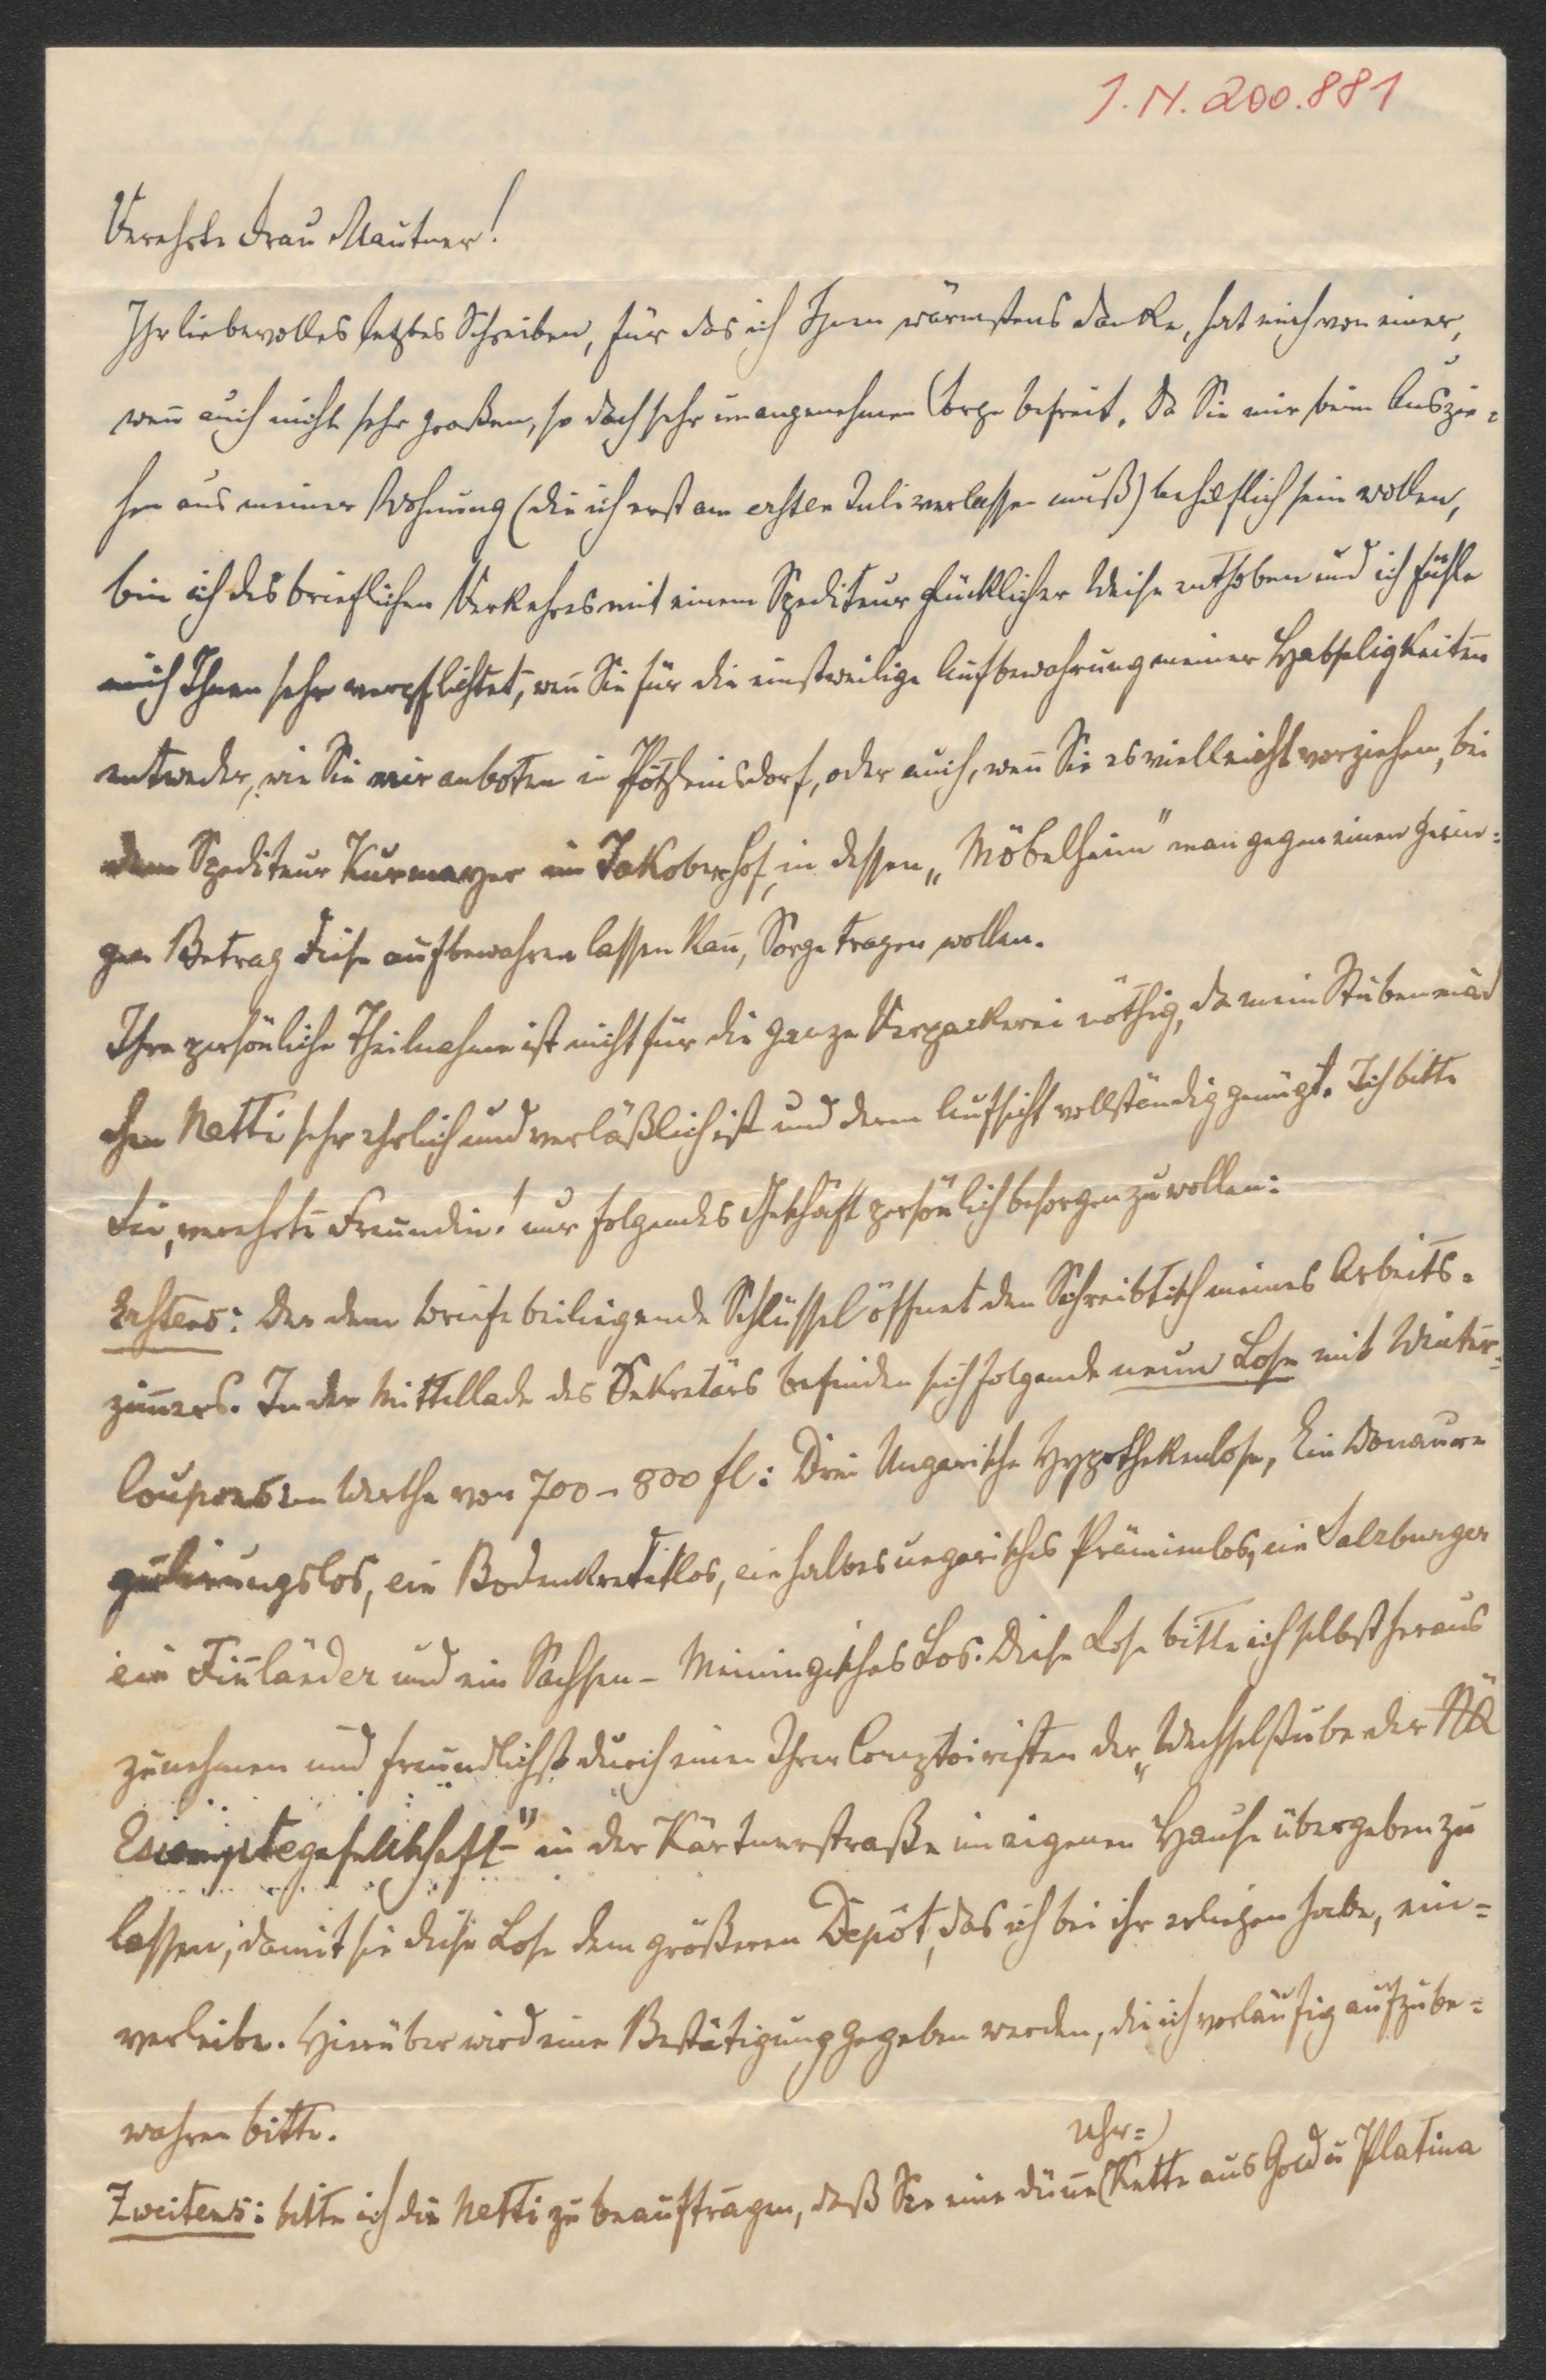 J. N. 200.881
Verehrte Frau Mautner!
Ihr liebevolles letztes Schreiben, für das ich Ihnen wärmstens danke, hat mich von einer,
wen̅ auch nicht sehr großen, so doch sehr unangenehmen Sorge befreit. Da Sie mir beim Auszie=
hen aus meiner Wohnung (die ich erst am ersten Juli verlassen muß) behilflich sein wollen,
bin ich des brieflichen Verkehres mit einem Spediteur glücklicher Weise enthoben und ich fühle
mich Ihnen sehr verpflichtet, wen̅ Sie für die einstweilige Aufbewahrung meiner Habseligkeiten
entweder, wie Sie mir anboten in Pötzleinsdorf, oder auch, wen̅ Sie es vielleicht vorziehen, bei
dem Spediteur Kurmayer im Jakoberhof, in dessen „Möbelheim" man gegen einen gerin=
gen Betrag diese aufbewahren lassen kan̅, Sorge tragen wollen.
Ihre persönliche Theilnahme ist nicht für die ganze Verpackerei nöthig, da mein Stubenmäd
chen Netti sehr ehrlich und verläßlich ist und deren Aufsicht vollständig genügt. Ich bitte
Sie, verehrte Freundin! nur folgendes Geschäft persönlich besorgen zu wollen:
Erstens: Der dem Briefe beiliegende Schlüssel öffnet den Schreibtisch meines Arbeits=
zim̅ers. In der Mittellade des Sekretärs befinden sich folgende neun Lose mit Winter=
Coupons im Werthe von 700 – 800 fl: Drei Ungarische Hypothekenlose, Ein Donaure
gulirungslos, ein Bodenkreditlos, ein halbes ungarisches Prämienlos, ein Salzburger
ein Fin̅länder und ein Sachsen-Meiningisches Los. Diese Lose bitte ich selbst heraus
zunehmen und freundlichst durch einen Ihrer Comptoiristen der „Wechselstube der NÖ
Escomptegesellschaft" in der Kärtnerstraße im eigenen Hause übergeben zu
lassen, damit sie diese Lose dem größeren Depôt, das ich bei ihr erliegen habe, ein=
verleibe. Hierüber wird eine Bestätigung gegeben werden, die ich vorläufig aufzube=
wahren bitte.
Uhr=
Zweitens: bitte ich die Netti zu beauftragen, daß Sie eine dün̅e Kette aus Gold u Platina